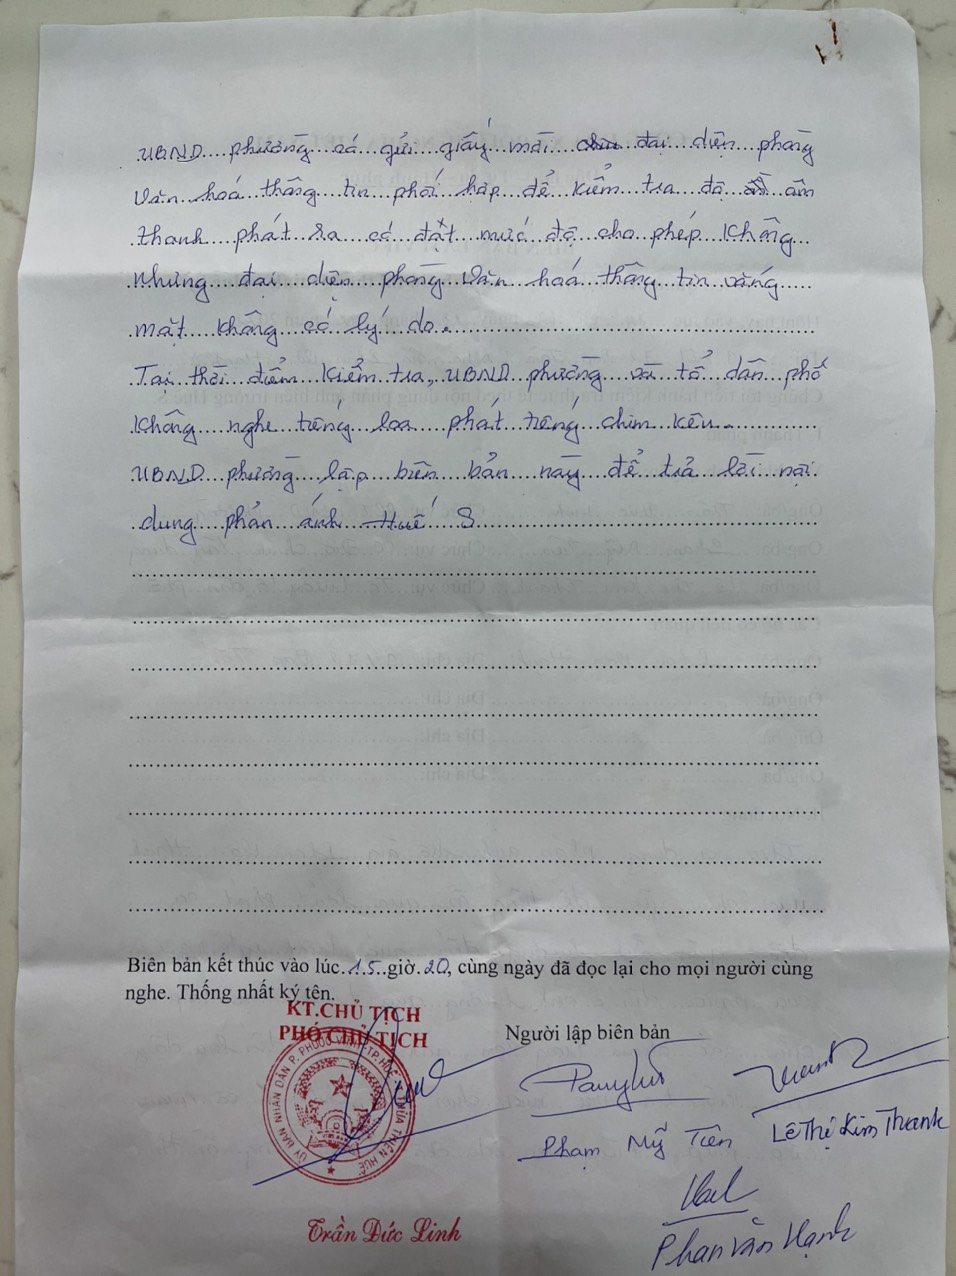 UBND phường có gửi giấy mời đại diện phòng
Văn hoá thông tin phối hợp để kiểm tra độ âm
thanh phát ra có đạt mức độ cho phép không
Nhưng đại diện phòng Văn hoá thông tin vắng
mặt không có lý do.
Tại thời điểm kiểm tra, UBND phường và tổ dân phố
không nghe tiếng loa phát tiếng chim kêu.
UBND phường lập biên bản này để trả lời nội
dung phản ánh Huế S
Biên bản kết thúc vào lúc 15 giờ 20, cùng ngày đã đọc lại cho mọi người cùng
nghe. Thống nhất ký tên.
KT.CHỦ TỊCH
PHÓ CHỦ TỊCH
Người lập biên bản
ỦY BAN NHÂN DÂN P. PHƯỚC VĨNH - TP.HUẾ T.THỪA THIÊN HUẾ
Phạm Mỹ Tiên
Lê Thị Kim Thanh
Trần Đức Linh
Phan Văn Hạnh